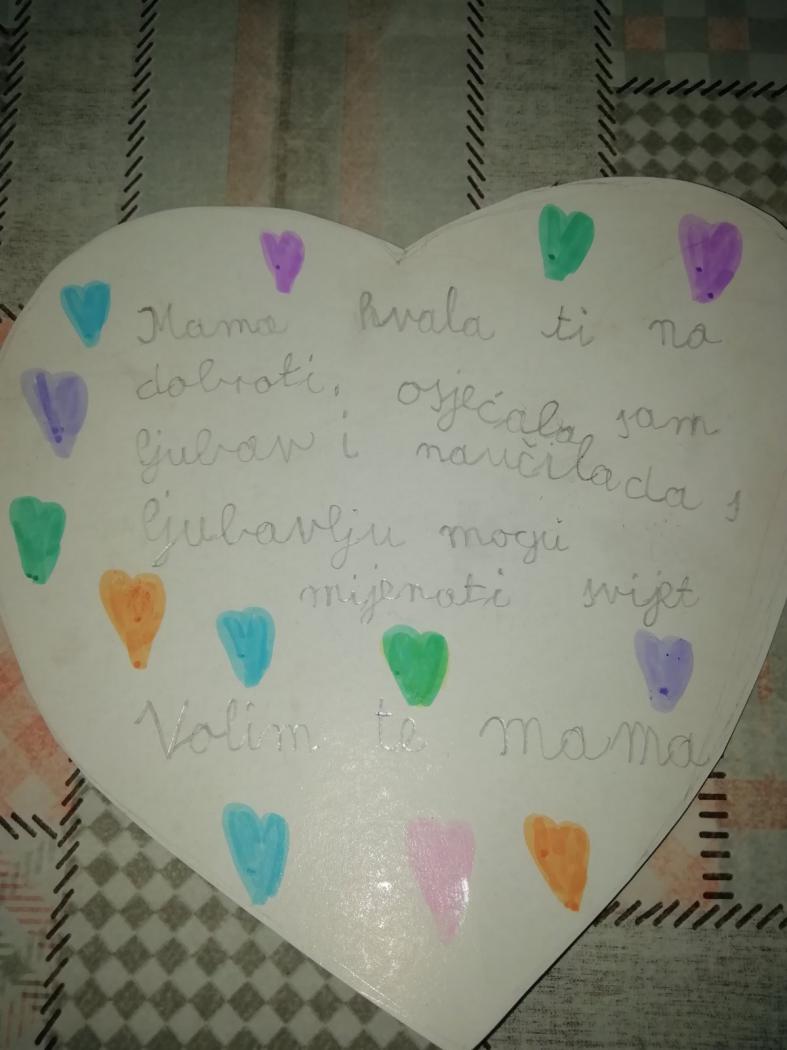 Mama hvala ti na
dobroti, osjećala sam
ljubav i naučila da s
ljubavlju mogu
mijenati svijet
Volim te mama